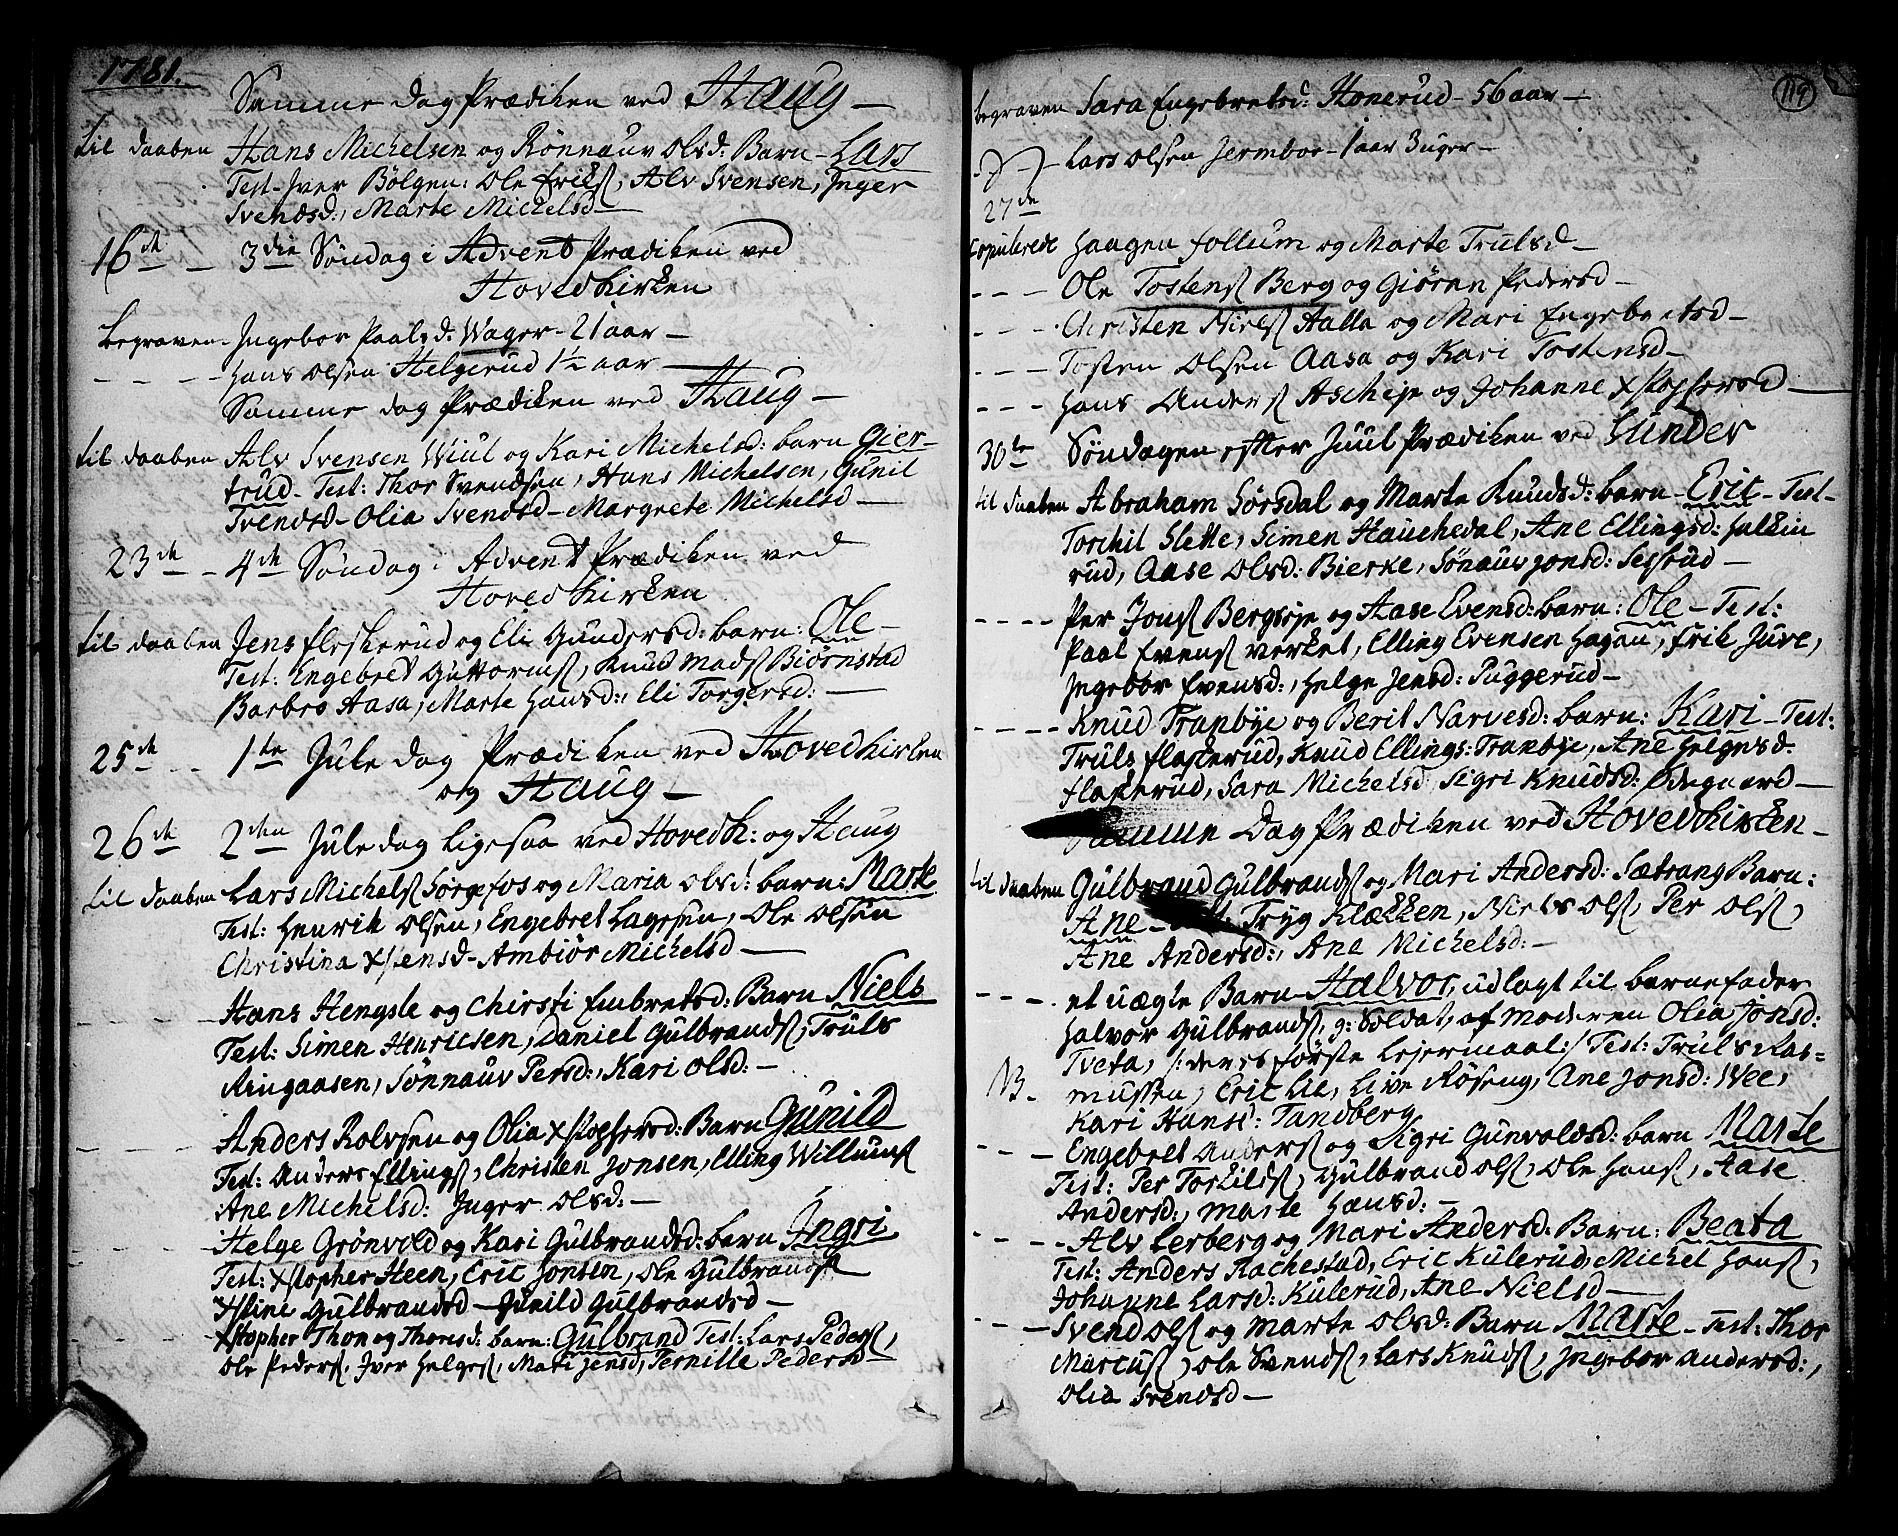 1781.
Samme dag Prædiken ved Haug —
til daaben Hans Michelsen og Rönnauv Olsd: Barn – Lars
Test – Iver Bölgen: Ole Erichs, Alv Svensen, Inger
Svendsd:, Marte Michelsd —
16de – 3die Söndag i Advent Prædiken ved
Hovedkirken
begraven – Ingebor Paalsd: Wager – 21 aar —
– – – – Hans Olsen Helgerud 1½ aar —
Samme dag Prædiken ved Haug —
til daaben Alv Svensen Wiul og Kari Michelsd: barn Gier-
trud – Test: Thor Svendsen, Hans Michelsen, Gunil
Svendsd – Olia Svendsd – Margrete Michelsd —
23de – 4de Söndag i Advent Prædiken ved
Hovedkirken
til daaben Jens fleskerud og Eli Gundersd: barn: Ole –
Test: Engebred Guttorms, Knud Mads Biörnstad
Barbro Aasa, Marte Hansd:, Eli Torgersd: —
25de – – 1te Jule dag Prædiken ved Hovedkirken
og Haug —
26de 2den Jule dag ligesaa ved Hovedk: og Haug
til daaben Lars Michels Sörgefos og Maria Olsd: barn: Marte
Test: Henrik Olsen, Engebret Lagesen, Ole Olsen
Christina Xstensd – Ambiör Michelsd —
– – – – Hans Hengsle og Chirsti Embretsd: Barn Niels
Test: Simen Henricsen, Daniel Gulbrands, Truls
Ringaasen, Sönnauv Persd:, Kari Olsd: —
– – – – Anders Rolvsen og Olia Xstophersd: Barn Gunild
Test: Anders Ellings, Christen Jonsen, Elling Willums
Ane Michelsd: Inger Olsd: —
– – – – Helge Grönvold og Kari Gulbrandsd: barn Ingri
Test: Xstopher Heen, Eric Jonsen, Ole Gulbrands
Xstine Gulbrandsd – Gunild Gulbrandsd —
– – – – Xstopher Thon og Thoresd: barn: Gulbrand Test: Lars Peders,
Ole Peders. Iver Helges, Mari Jensd, Pernille Pedersd —
119
begraven Sara Engebretsd: Honerud – 56 aar —
Lars Olsen Jermbor – 1 aar 3 uger —
27de
Copulerede Haagen follum og Marte Trulsd —
– – – Ole Tostens Berg og Giören Pedersd —
– – – Christen Niels Aalla og Mari Engebretsd —
– – – Tosten Olsen Aasa og Kari Tostensd —
– – – Hans Anders Ascheje og Johanne Xstophersd —
30te Söndagen efter Juul Prædiken ved Lunder
til daaben Abraham Sörsdal og Marte Knudsd: barn – Eric – Test –
Torchil Slette, Simen Hauchedal, Ane Ellingsd: falkin
rud, Aase Olsd: Bierke, Sönauv Jonsd: Sessrud —
– – – – Per Jons Bergsje og Aase Evensd: barn: Ole – Test:
Paal Evens verket, Elling Evensen Hagan, Erik Juve,
Ingebor Evensd:, Helge Jensd: Puggerud —
– – – – Knud Tranbye og Berit Narvesd: barn: Kari – Test:
Truls flaskerud, Knud Ellings: Tranbye, Ane Helgesd.
flaskerud, Sara Michelsd Sigri Knudsd: Ödegaard —
Samme Dag Prædiken ved Hovedkirken –
til daaben Gulbrand Gulbrands og Mari Andersd: Sætrang Barn:
Ane – Tryg Klækken, Niels Ols, Per Ols,
Ane Andersd:, Ane Michelsd: —
– – – . et uægte Barn – Halvor, udlagt til barnefader
Halvor Gulbrands, g: Soldat, af Moderen Olia Jonsd:
Tveta, /: deres förste Lejermaal :/ Test: Truls Ras=
NB. mussen, Eric Lie, Live Röseng, Ane Jonsd: Wee,
Kari Hansd: Tandberg
– – – Engebret Anders og Sigri Gunvoldsd: barn Marte
Test: Per Torkilds, Gulbrand Ols, Ole Hans, Aase
Andersd:, Marte Hansd: —
– – – – Alv Lerberg og Mari Andersd: Barn: Beata
Test: Anders Rachestad, Eric Kulerud, Michel Hans,
Johanne Larsd: Kulerud, Ane Nielsd —
– – – Svend Ols og Marte Olsd: Barn Marte – Test: Thor
Marcus, Ole Svends, Lars Knuds, Ingebor Andersd:,
Olia Svendsd —